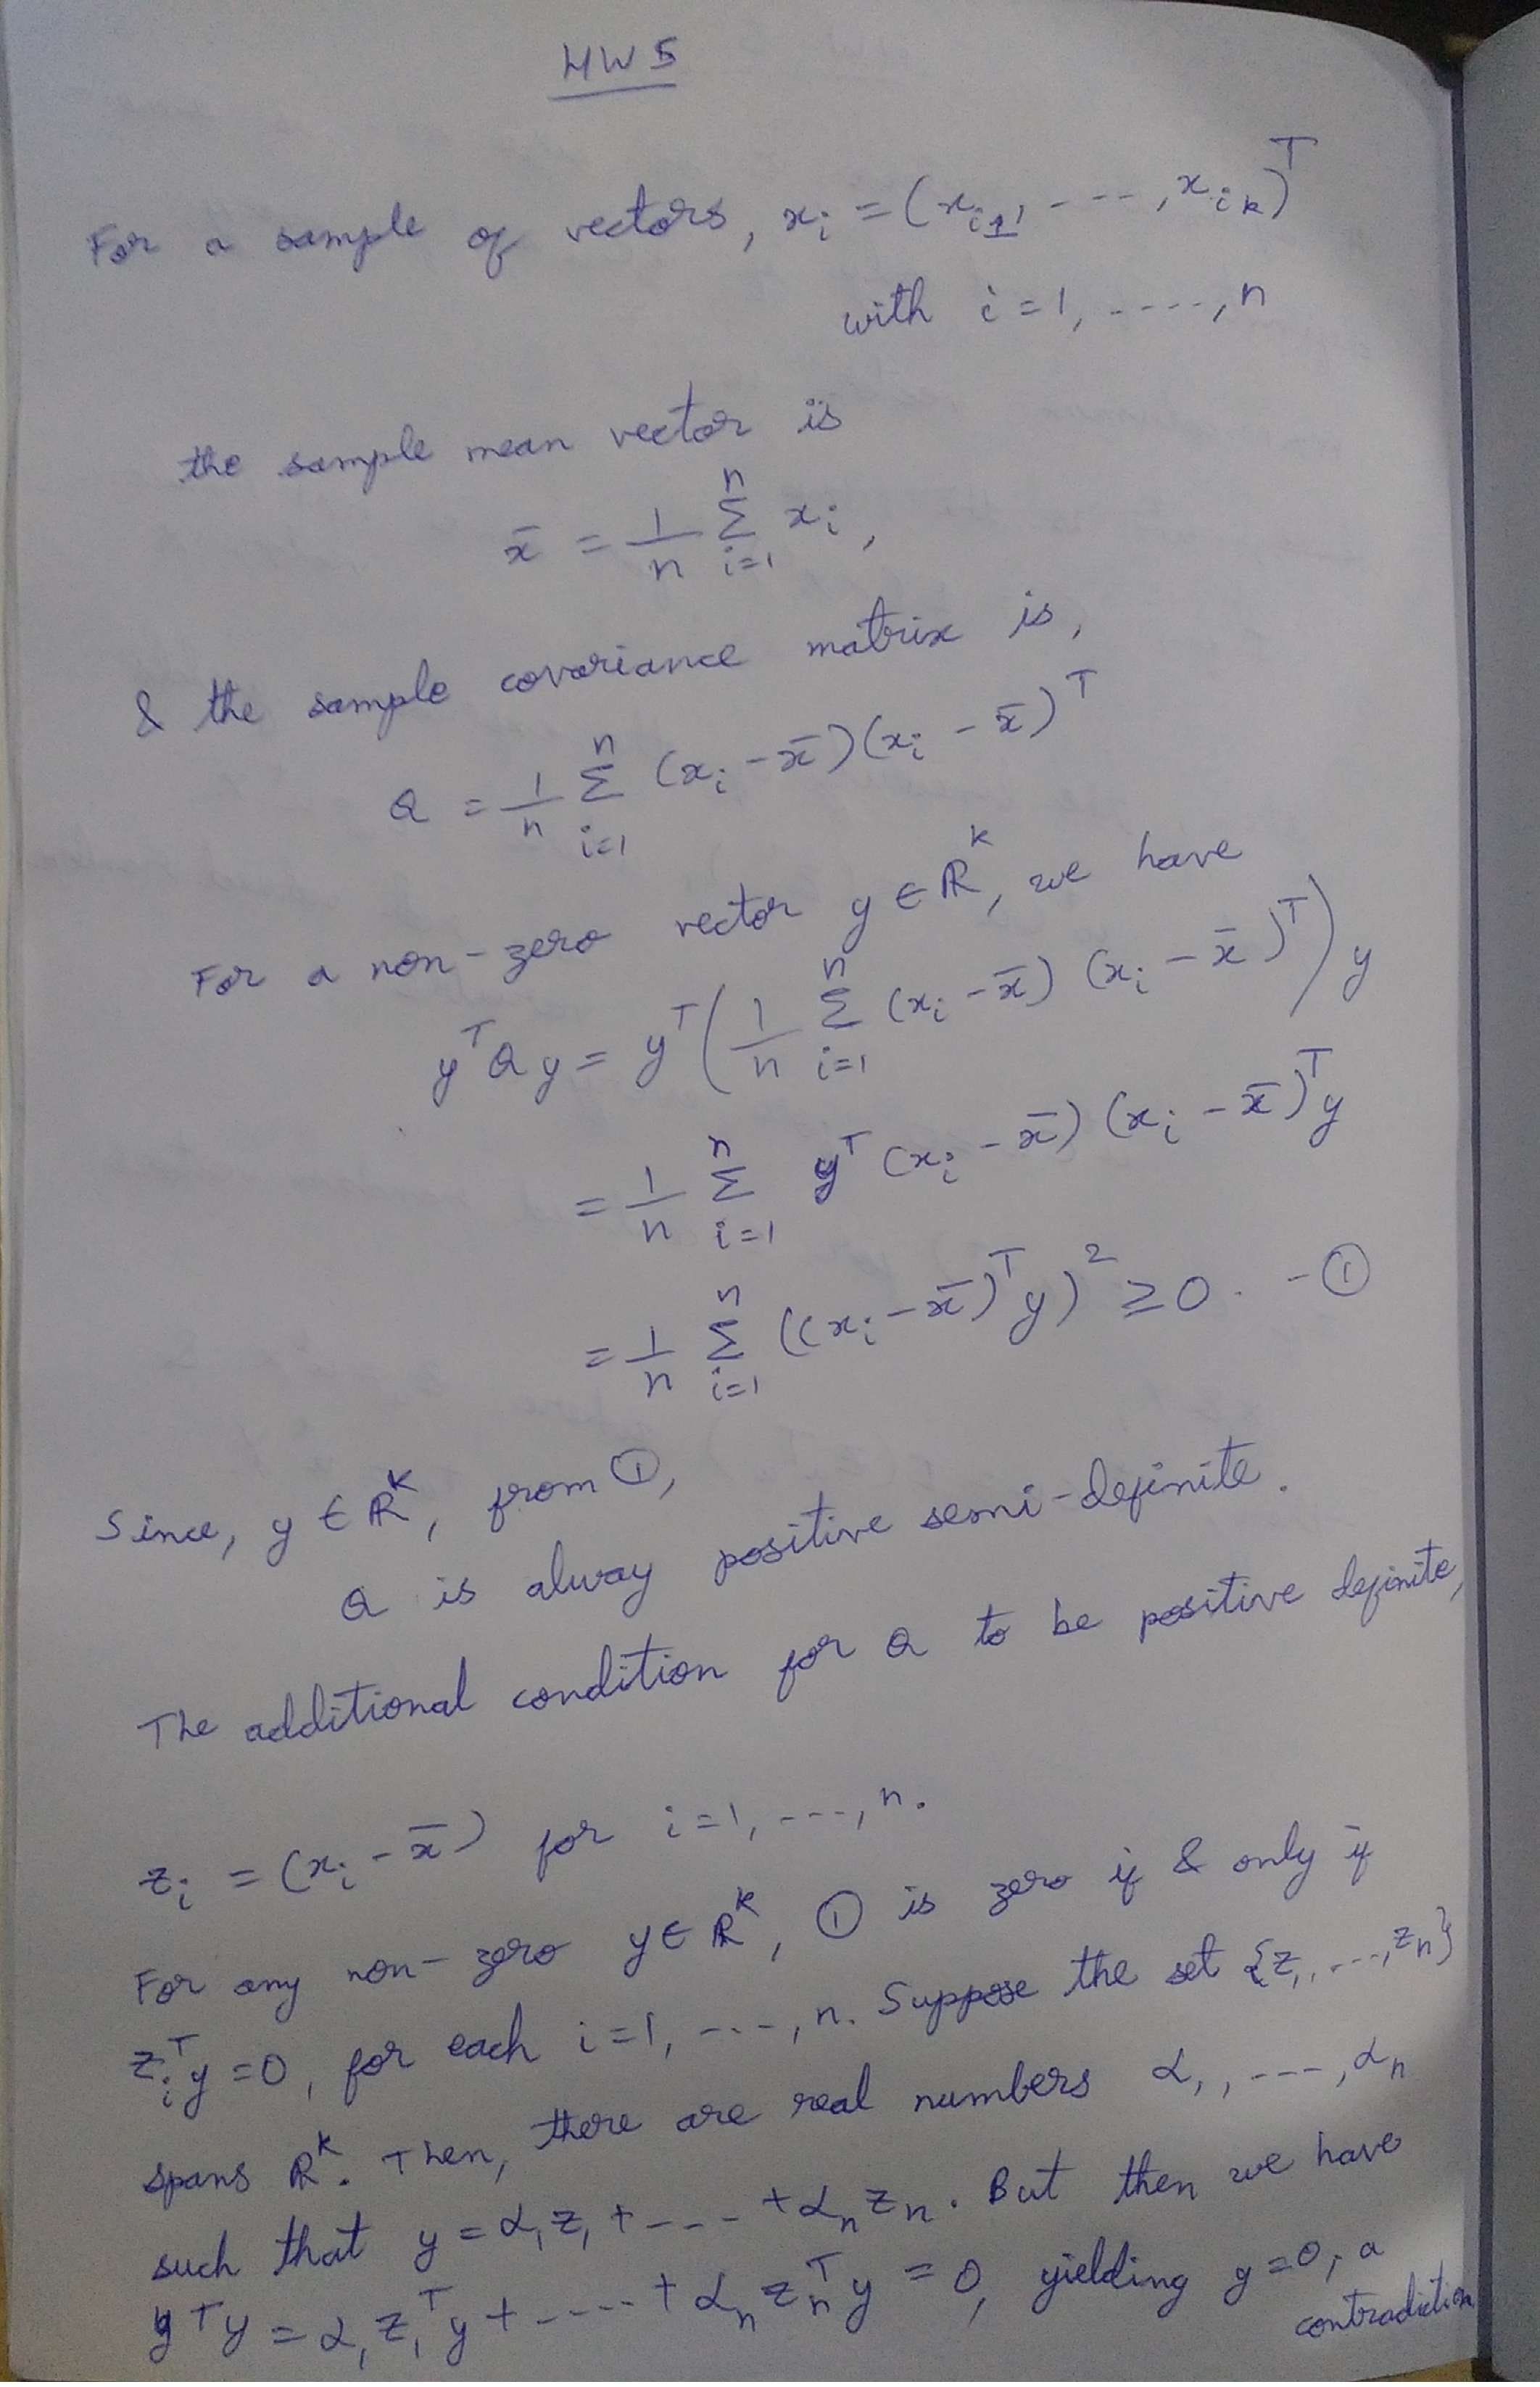 HW 5
For a sample of vectors, xᵢ = (xᵢ₁, ----, xᵢₖ)ᵀ
with i = 1, ----, n
the sample mean vector is
x̄ = 1/n Σⁿᵢ₌₁ xᵢ,
& the sample covariance matrix is,
Q = 1/n Σⁿᵢ₌₁ (xᵢ - x̄)(xᵢ - x̄)ᵀ
For a non-zero vector y ∈ ℝᵏ, we have
yᵀQy = yᵀ(1/n Σⁿᵢ₌₁ (xᵢ - x̄)(xᵢ - x̄)ᵀ)y
= 1/n Σⁿᵢ₌₁ yᵀ(xᵢ - x̄)(xᵢ - x̄)ᵀy
= 1/n Σⁿᵢ₌₁ ((xᵢ - x̄)ᵀy)² ≥ 0. - ①
Since, y ∈ ℝᵏ, from ①,
Q is alway positive semi-definite.
The additional condition for Q to be positive definite,
zᵢ = (xᵢ - x̄) for i = 1, ---, n.
For any non-zero y ∈ ℝᵏ, ① is zero if & only if
zᵢᵀy = 0, for each i = 1, ---, n. Suppose the set {z₁, ---, zₙ}
spans ℝᵏ. Then, there are real numbers α₁, ---, αₙ
such that y = α₁z₁ + --- + αₙzₙ. But then we have
yᵀy = α₁z₁ᵀy + ---- + αₙzₙᵀy = 0, yielding y = 0, a
contradiction